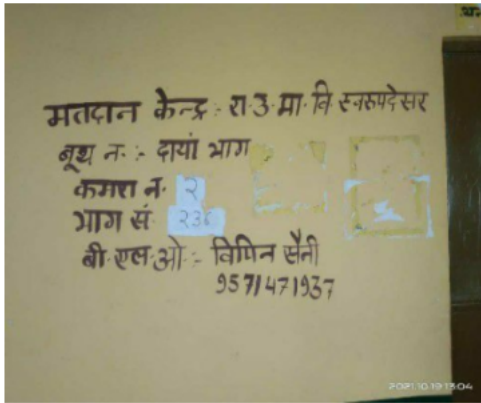 मतदान केन्द्र :- रा·उ·मा·वि स्वरूपदेसर
बूथ न· :- दायां भाग
कमरा न· २
भाग सं
बी·एल·ओ :- विपिन सैनी
9571471937
2021.10.19 13:04